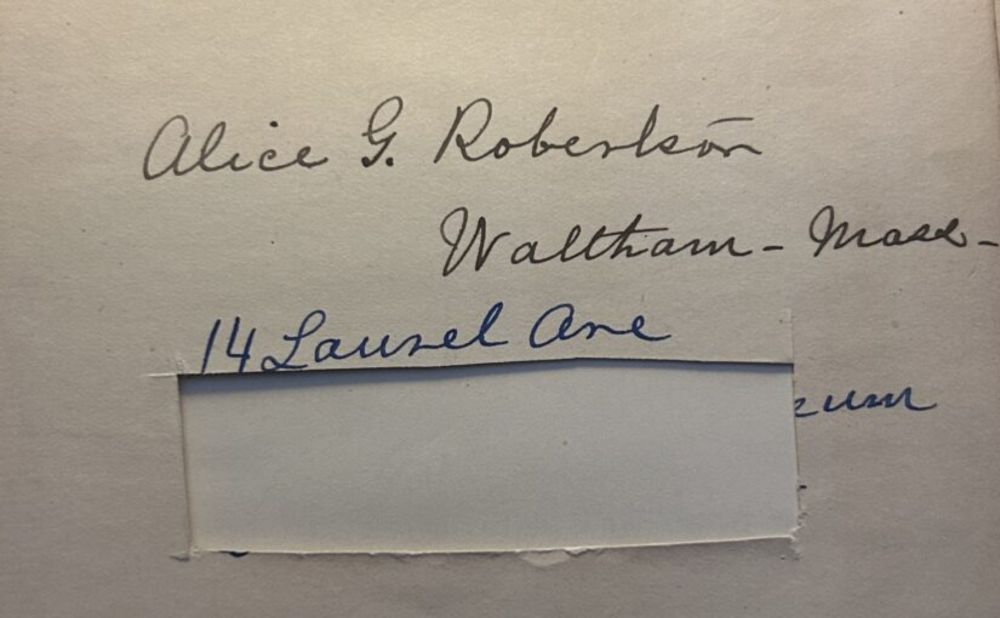 Alice G. Robertson
Waltham - Mass -
14 Laurel Ave